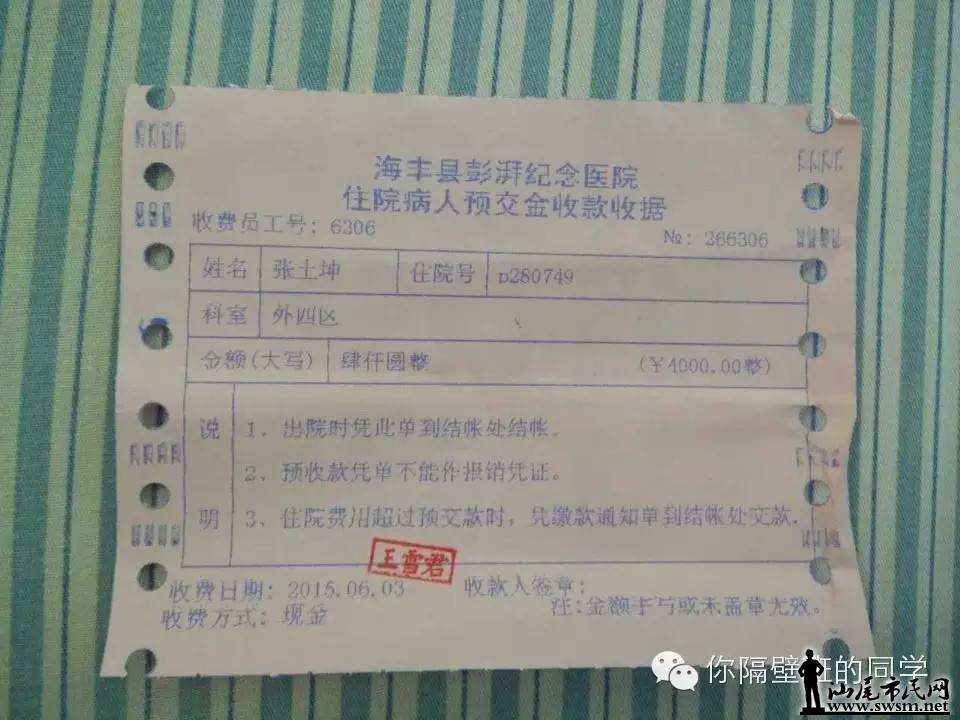 海丰县彭湃纪念医院
住院病人预交金收款收据
收费员工号: 6306
№: 266306
姓名 张土坤 住院号 p280749
科室 外四区
金额(大写) 肆仟圆整 (¥4000.00整)
说明
1、出院时凭此单到结帐处结帐.
2、预收款凭单不能作报销凭证。
3、住院费用超过预交款时, 凭缴款通知单到结帐处交款.
王雪君
收费日期: 2015.06.03 收款人签章:
收费方式: 现金 注:金额手写或未盖章无效。
你隔壁班的同学
汕尾市民网
www.swsm.net